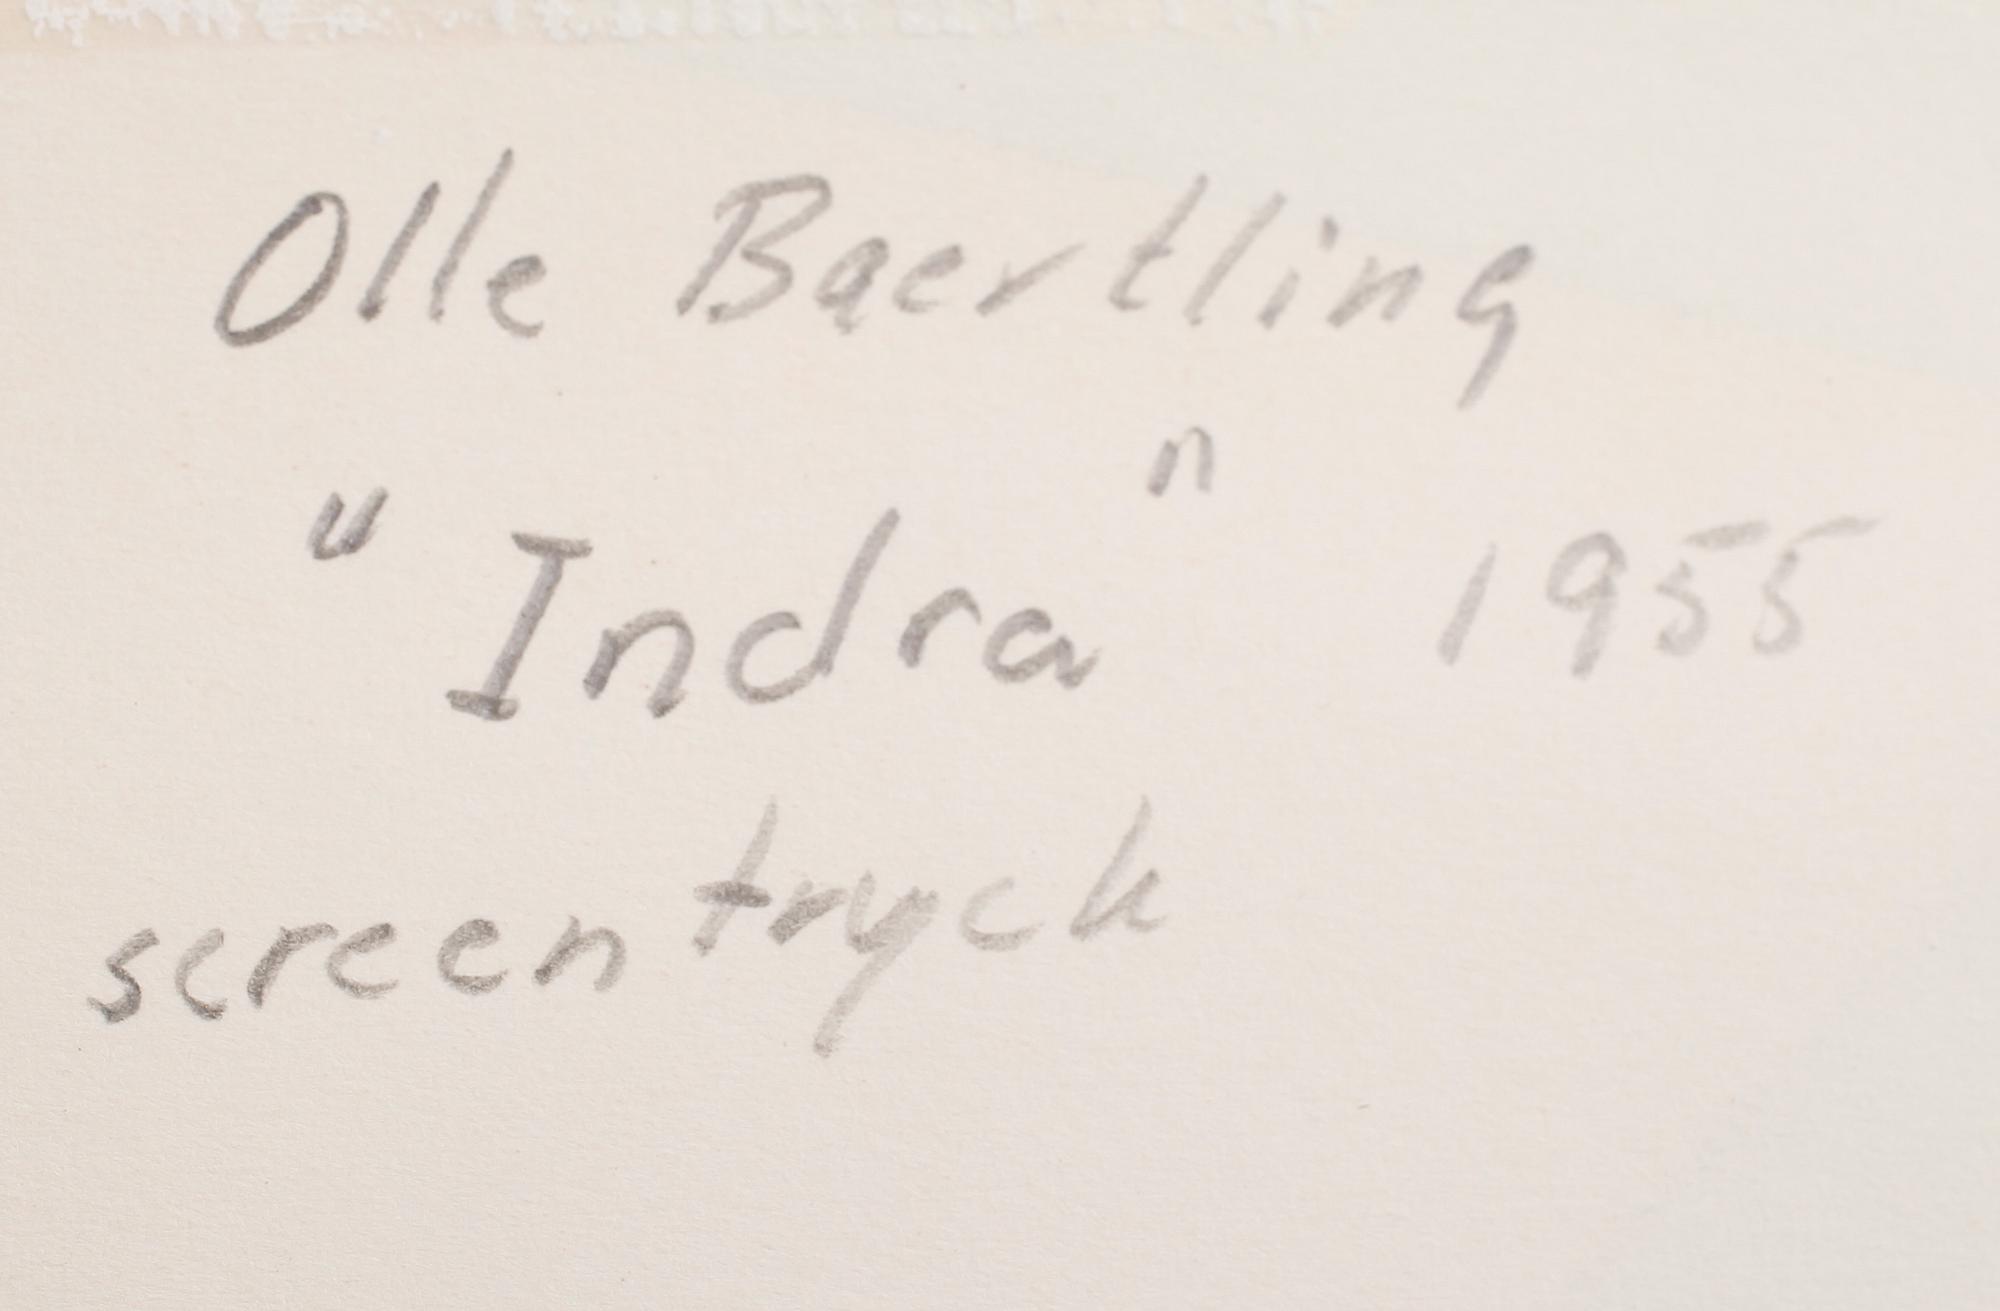 Olle Baertling
"Indra" 1955
screentryck